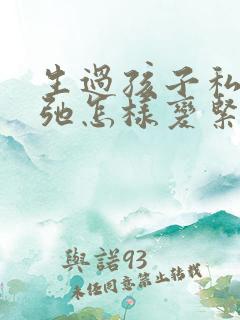 生過孩子私
弛怎樣變緊
與諾93
未任同意禁止轉載